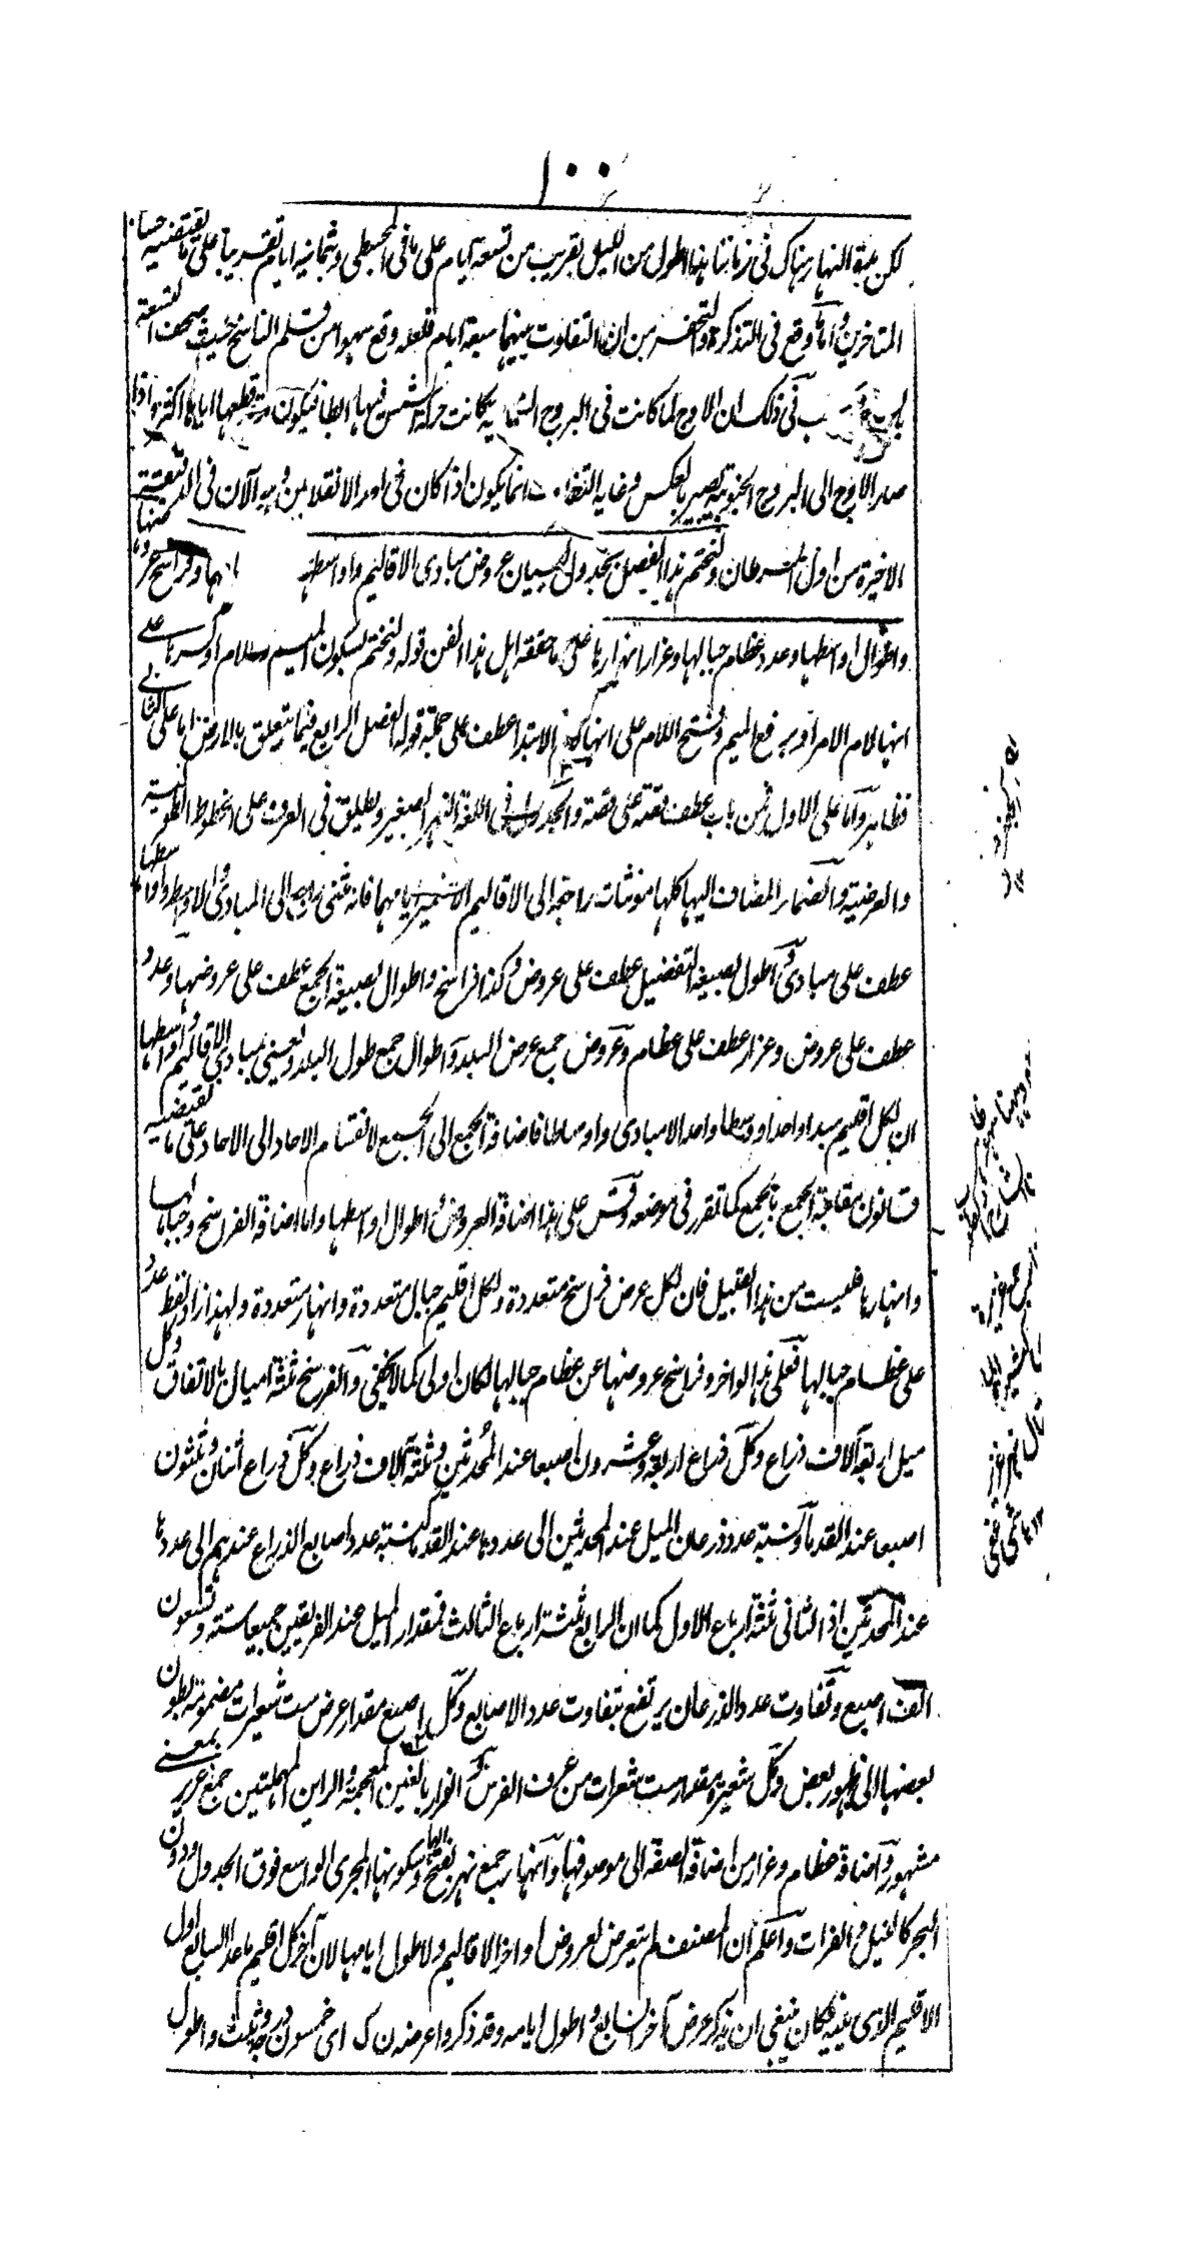 ١٠٠
لكن مدة النهار هناك فى زماننا هذا اطول من الليل بقريب من تسعة ايام على ما فى المجسطى وثمانية ايام تقريبا على ما يقتضيه حساب
المتاخرين واما ما وقع فى التذكرة والتحفة من ان التفاوت بينهما سبعة ايام فلعله وقع سهوا من قلم الناسخ حيث صحف التسعة
فى ذلك ان الاوج لما كانت فى البروج الشمالية كانت حركة الشمس فيها ابطأ فيكون مدة قطعها اياها اكثر واذا
صار الاوج الى البروج الجنوبية يصير بالعكس وغاية التفاوت انما يكون اذا كان فى احد الانقلابين وهو الآن فى الدقيقة
الاخيرة من اول السرطان ولنختم هذا الفصل بجدول لبيان عروض مبادى الاقاليم واواسطها وفراسخ عروضها
واطوال اواسطها وعدد عظام جبالها وغزار انهارها على ما حققه اهل هذا الفن قوله ولنختم بسكون الميم واللام او كسرها على
انها لام الامر او برفع الميم وفتح اللام على انها لام الابتدا عطف على جملة قوله الفصل الرابع فيما يتعلق بالارض اما على الثانى
فظاهر واما على الاول فمن باب عطف قصة على قصة والجدول فى اللغة النهر الصغير ويطلق فى العرف على الخطوط الطولية
والعرضية والضماير المضاف اليها كلها مونثات راجعة الى الاقاليم الا ضمير ايامهما فانه مثنى راجع الى المبادى والاواسط واواسطها
عطف على مبادى واطول بصيغة التفضيل عطف على عروض وكذا فراسخ واطوال بصيغة الجمع عطف على عروضها وعدد
عطف على عروض وغزار عطف على عظام وعروض جمع عرض البلد واطوال جمع طول البلد ويعنى بمبادى الاقاليم واواسطها
ان لكل اقليم مبدا واحدا ووسطا واحدا لا مبادى واوساطا فاضافة الجمع الى الجمع لانقسام الاحاد الى الاحاد على ما يقتضيه
قانون مقابلة الجمع بالجمع كما تقرر فى موضعه وقس على هذا اضافة العروض واطوال اواسطها واما اضافة الفراسخ وجبالها
وانهارها فليست من هذا القبيل فان لكل عرض فراسخ متعددة ولكل اقليم جبال متعددة وانهار متعددة ولهذا زاد لفظ عدد
على عظام جبالها فعلى هذا لو اخر وفراسخ عروضها عن عظام جبالها لكان اولى كما لا يخفى والفرسخ ثلثة اميال بالاتفاق وكل
ميل اربعة آلاف ذراع وكل ذراع اربعة وعشرون اصبعا عند المحدثين وثلثة آلاف ذراع وكل ذراع اثنان وثلثون
اصبعا عند القدما ونسبة عدد ذرعان الميل عند المحدثين الى عددها عند القدما كنسبة عدد اصابع الذراع عندهم الى عددها
عند المحدثين اذ الثانى ثلثة ارباع الاول كما ان الرابع ثلثة ارباع الثالث فمقدار الميل عند الفريقين جميعا ستة وتسعون
الف اصبع وتفاوت عدد الذرعان يرتفع بتفاوت عدد الاصابع وكل اصبع مقدار عرض ست شعيرات مضمومة بطون
بعضها الى ظهور بعض وكل شعيرة مقدار ست شعرات من عرف الفرس والغزار بالغين المعجمة والراين المهملتين جمع غزير بمعنى
مشهور واضافة عظام وغزار من اضافة الصفة الى موصوفها وانهار جمع نهر بفتح الها وسكونها المجرى الواسع فوق الجدول ودون
البحر كالنيل والفرات واعلم ان المصنف لم يتعرض لعروض اواخر الاقاليم ولا طول ايامها لان آخر كل اقليم ما عدا السابع اول
الاقليم الذى يليه فكان ينبغى ان يذكر عرض آخر السابع واطول ايامه وقد ذكروا عرضه ن ك اى خمسون درجة وثلث واطول